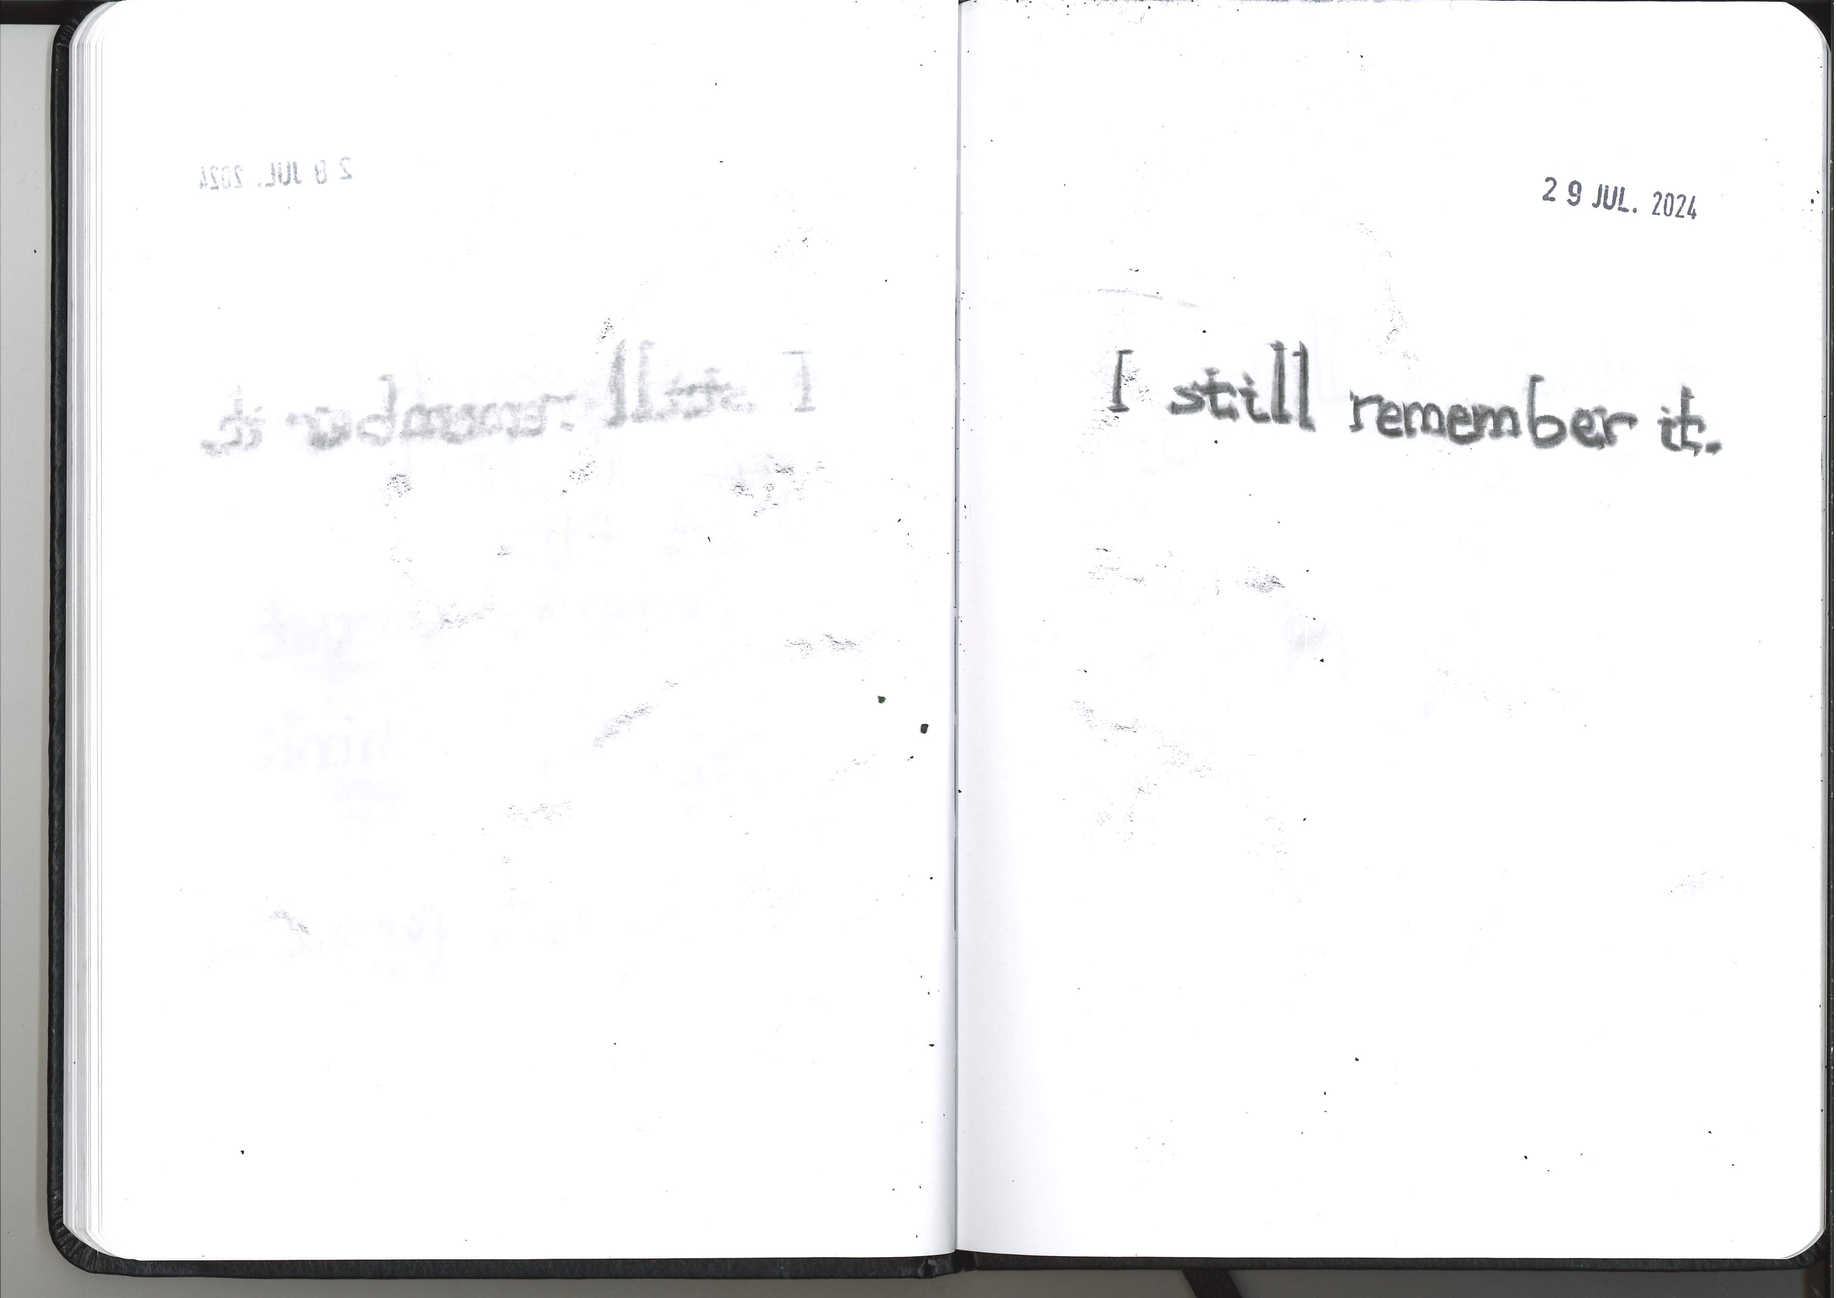 29 JUL. 2024
I still remember it.